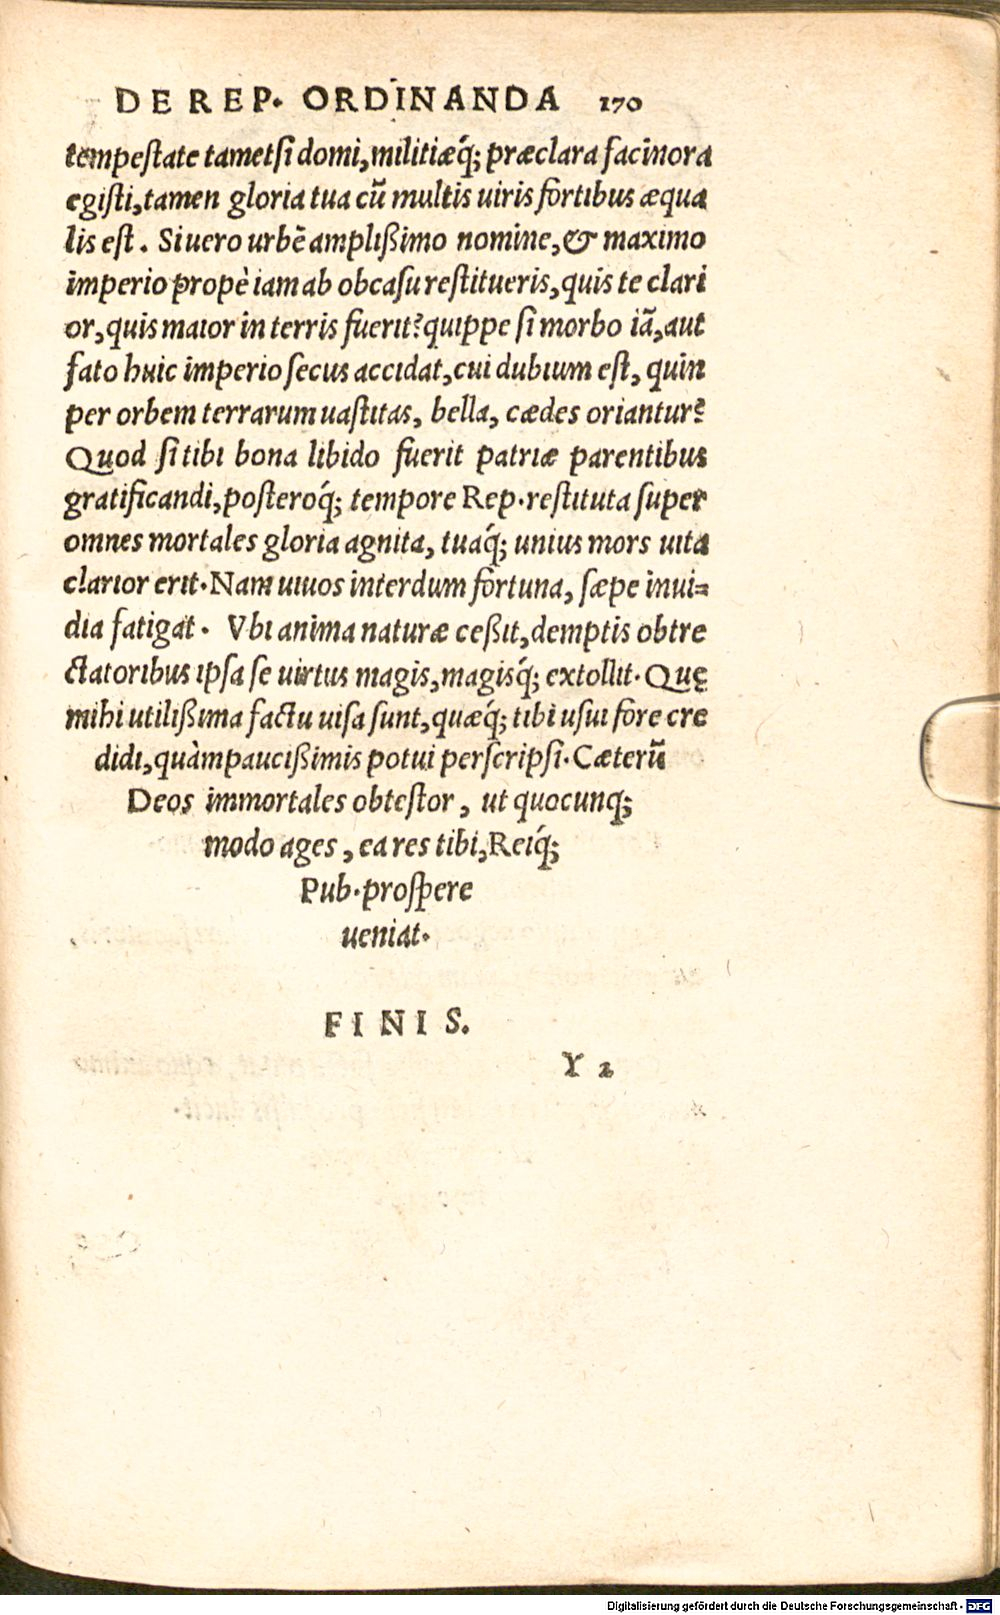 DE REP. ORDINANDA 170
tempestate tametsi domi, militiæq́; præclara facinora
egisti, tamen gloria tua cū multis uiris fortibus æqua
lis est. Si uero urbē amplißimo nomine, & maximo
imperio propè iam ab obcasu restitueris, quis te clari
or, quis maior in terris fuerit? quippe si morbo iā, aut
fato huic imperio secus accidat, cui dubium est, quin
per orbem terrarum uastitas, bella, cædes oriantur?
Quod si tibi bona libido fuerit patriæ parentibus
gratificandi, posteroq́; tempore Rep. restituta super
omnes mortales gloria agnita, tuaq́; unius mors uita
clarior erit. Nam uiuos interdum fortuna, sæpe inui-
dia fatigat. Vbi anima naturæ ceßit, demptis obtre
ctatoribus ipsa se uirtus magis, magisq́; extollit. Quę
mihi utilißima factu uisa sunt, quæq́; tibi usui fore cre
didi, quàm paucißimis potui perscripsi. Cæterū
Deos immortales obtestor, ut quocunq;
modo ages, ea res tibi, Reiq́;
Pub. prospere
ueniat.
FINIS.
Y 2
Digitalisierung gefördert durch die Deutsche Forschungsgemeinschaft - DFG